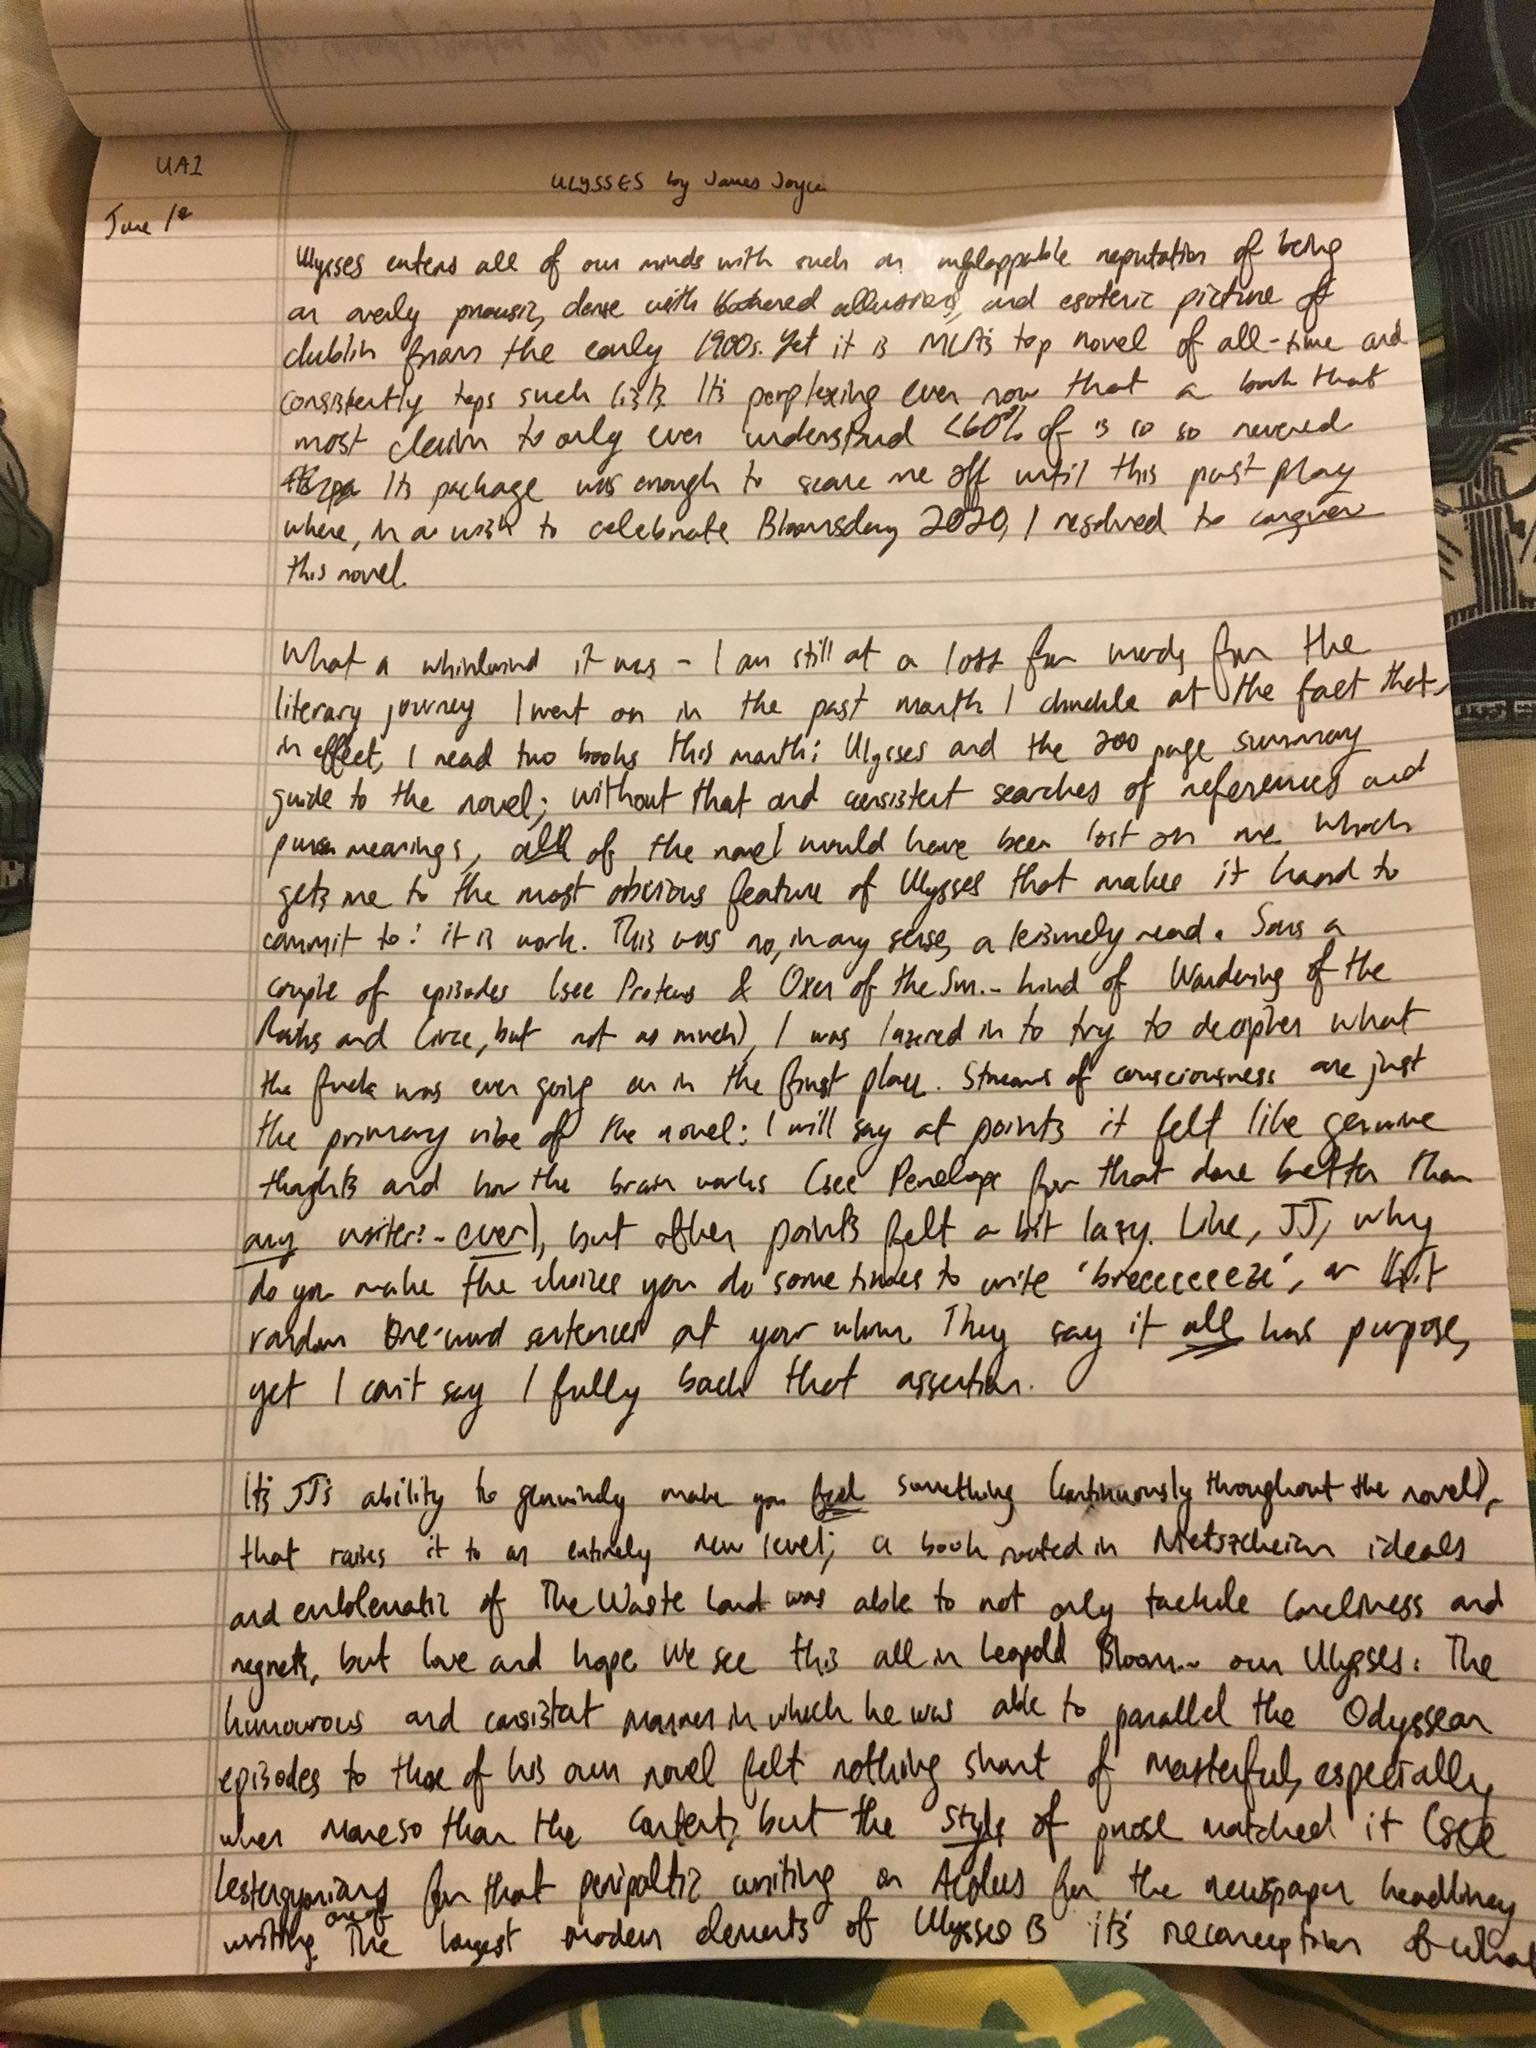 UAI
ULYSSES by James Joyce
June 1st
Ulysses enters all of our minds with such an unflappable reputation of being
an overly prousic, dense with allusions, and esoteric picture of
dublin from the early 1900s. Yet it is MLA's top novel of all-time and
consistently tops such lists. Its perplexing even now that a book that
most claim to only ever understand <60% of is so so revered
Its package was enough to scare me off until this past play
where, in a wish to celebrate Bloomsday 2020, I resolved to conquer
this novel.
What a whirlwind it was - I am still at a loss for words for the
literary journey I went on in the past month. I chuckle at the fact that,
in effect, I read two books this month: Ulysses and the 200 page summary
guide to the novel; without that and consistent searches of references and
meanings, all of the novel would have been lost on me. Which
gets me to the most obvious feature of Ulysses that makes it hard to
commit to: it is work. This was no, in any sense, a leisurely read. Sans a
couple of episodes (see Proteus & Oxen of the Sun.. kind of Wandering of the
Rocks and Circe, but not as much), I was lasered in to try to decipher what
the fuck was ever going on in the first place. Streams of consciousness are just
the primary vibe of the novel: I will say at points it felt like genuine
thoughts and how the brain works (see Penelope for that done better than
any writer.. ever), but other points felt a bit lazy. Like, JJ, why
do you make the choices you do sometimes to write 'breeeeeeze', or
random one-word sentences at your whim. They say it all has purpose,
yet I can't say I fully back that assertion.
It's JJ's ability to genuinely make you feel something (continuously throughout the novel),
that raises it to an entirely new level; a book rooted in Nietszcheian ideals
and emblematic of The Waste Land was able to not only tackle loneliness and
regrets, but love and hope. We see this all in Leopold Bloom.. our Ulysses. The
humourous and consistent manner in which he was able to parallel the Odyssean
episodes to those of his own novel felt nothing short of masterful, especially
when moreso than the content, but the style of prose matched it (see
Lestergynians for that peripaltic writing or Aeolus for the newspaper headliney
writing. One of the largest modern elements of Ulysses is it's reconception of what